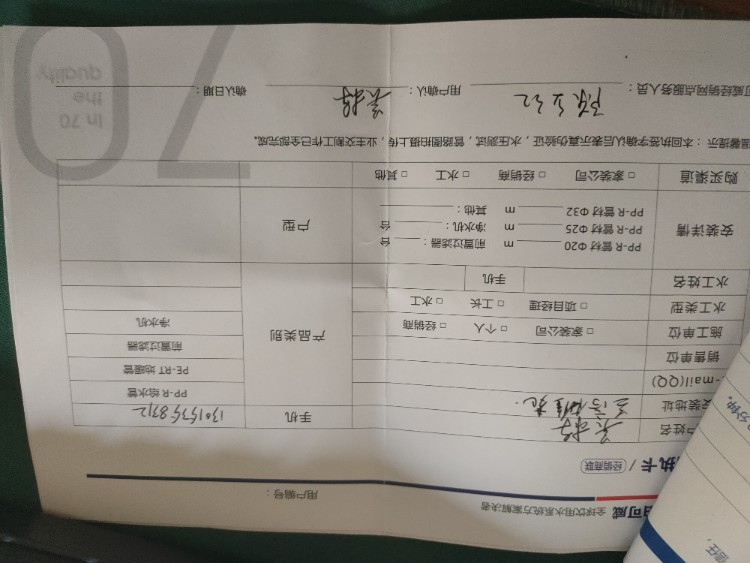 日可威 全球饮用水系统方案解决者
用户编号：
执卡 / 经销商联
户姓名 手机
安装地址
-mail(QQ)
销售单位
施工单位 □ 家装公司 □ 个人 □ 经销商
水工类型 □ 项目经理 □ 工长 □ 水工
水工姓名 手机
产品类别
PP-R 给水管
PE-RT 地暖管
前置过滤器
净水机
安装详情
PP-R 管材 Φ20 m 前置过滤器： 台
PP-R 管材 Φ25 m 净水机： 台
PP-R 管材 Φ32 m 其他：
户型
购买渠道 □ 家装公司 □ 经销商 □ 水工 □ 其他
温馨提示：本回执签字确认后表示真伪验证，水压测试，管路图拍摄上传，业主交割工作已全部完成。
可威经销网点服务人员： 用户确认： 确认日期：
70
In 70
the
quality
分钟。
信任，